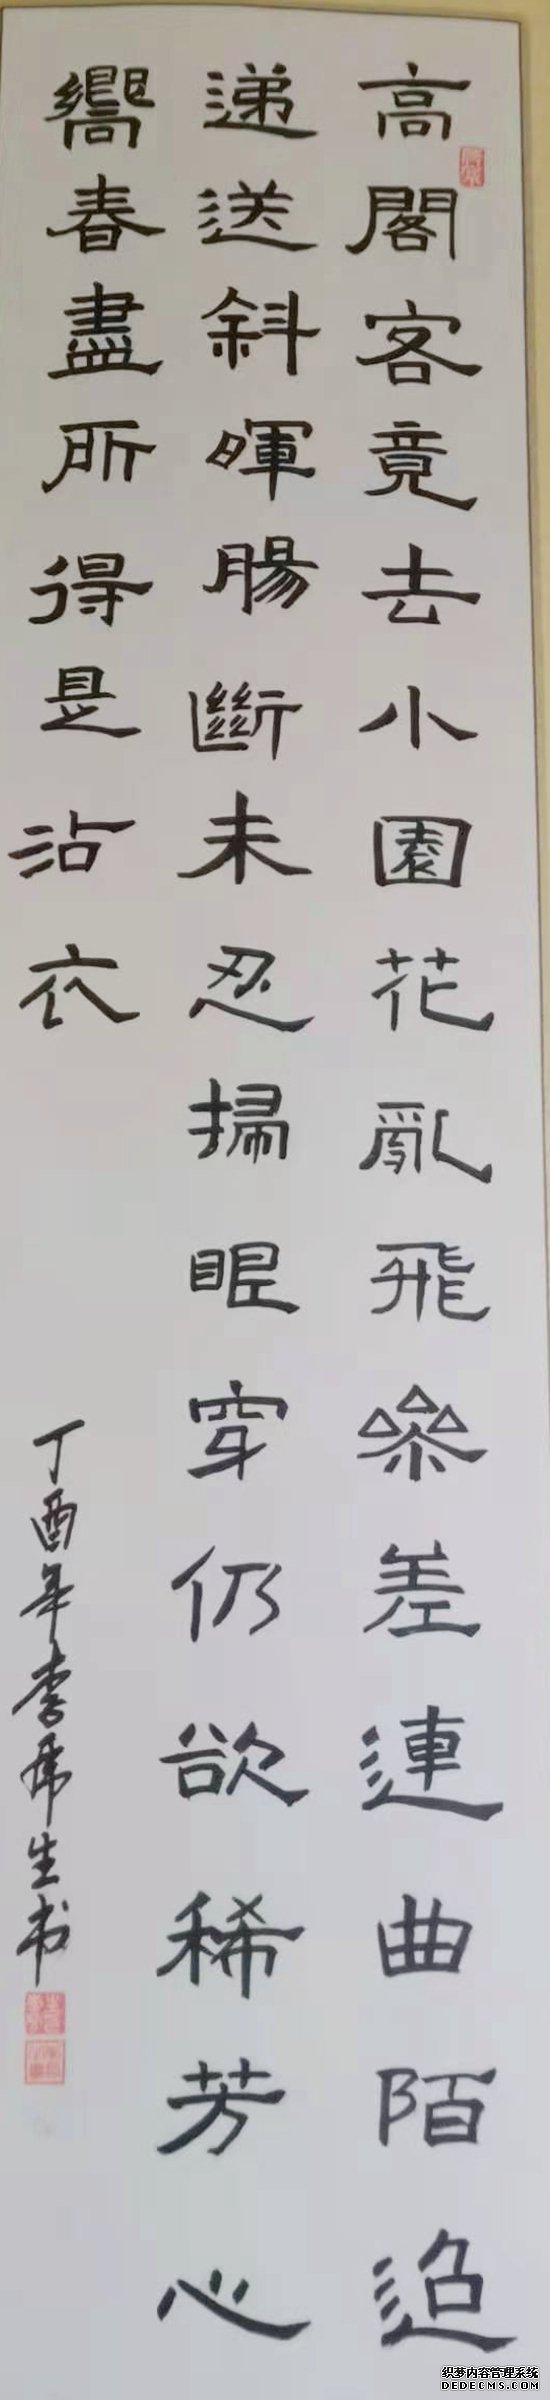 高閣客竟去小園花亂飛參差連曲陌迢
递送斜暉腸斷未忍掃眼穿仍欲稀芳心
嚮春盡所得是沾衣
丁酉年李生书
织梦内容管理系统
DEDECMS.COM